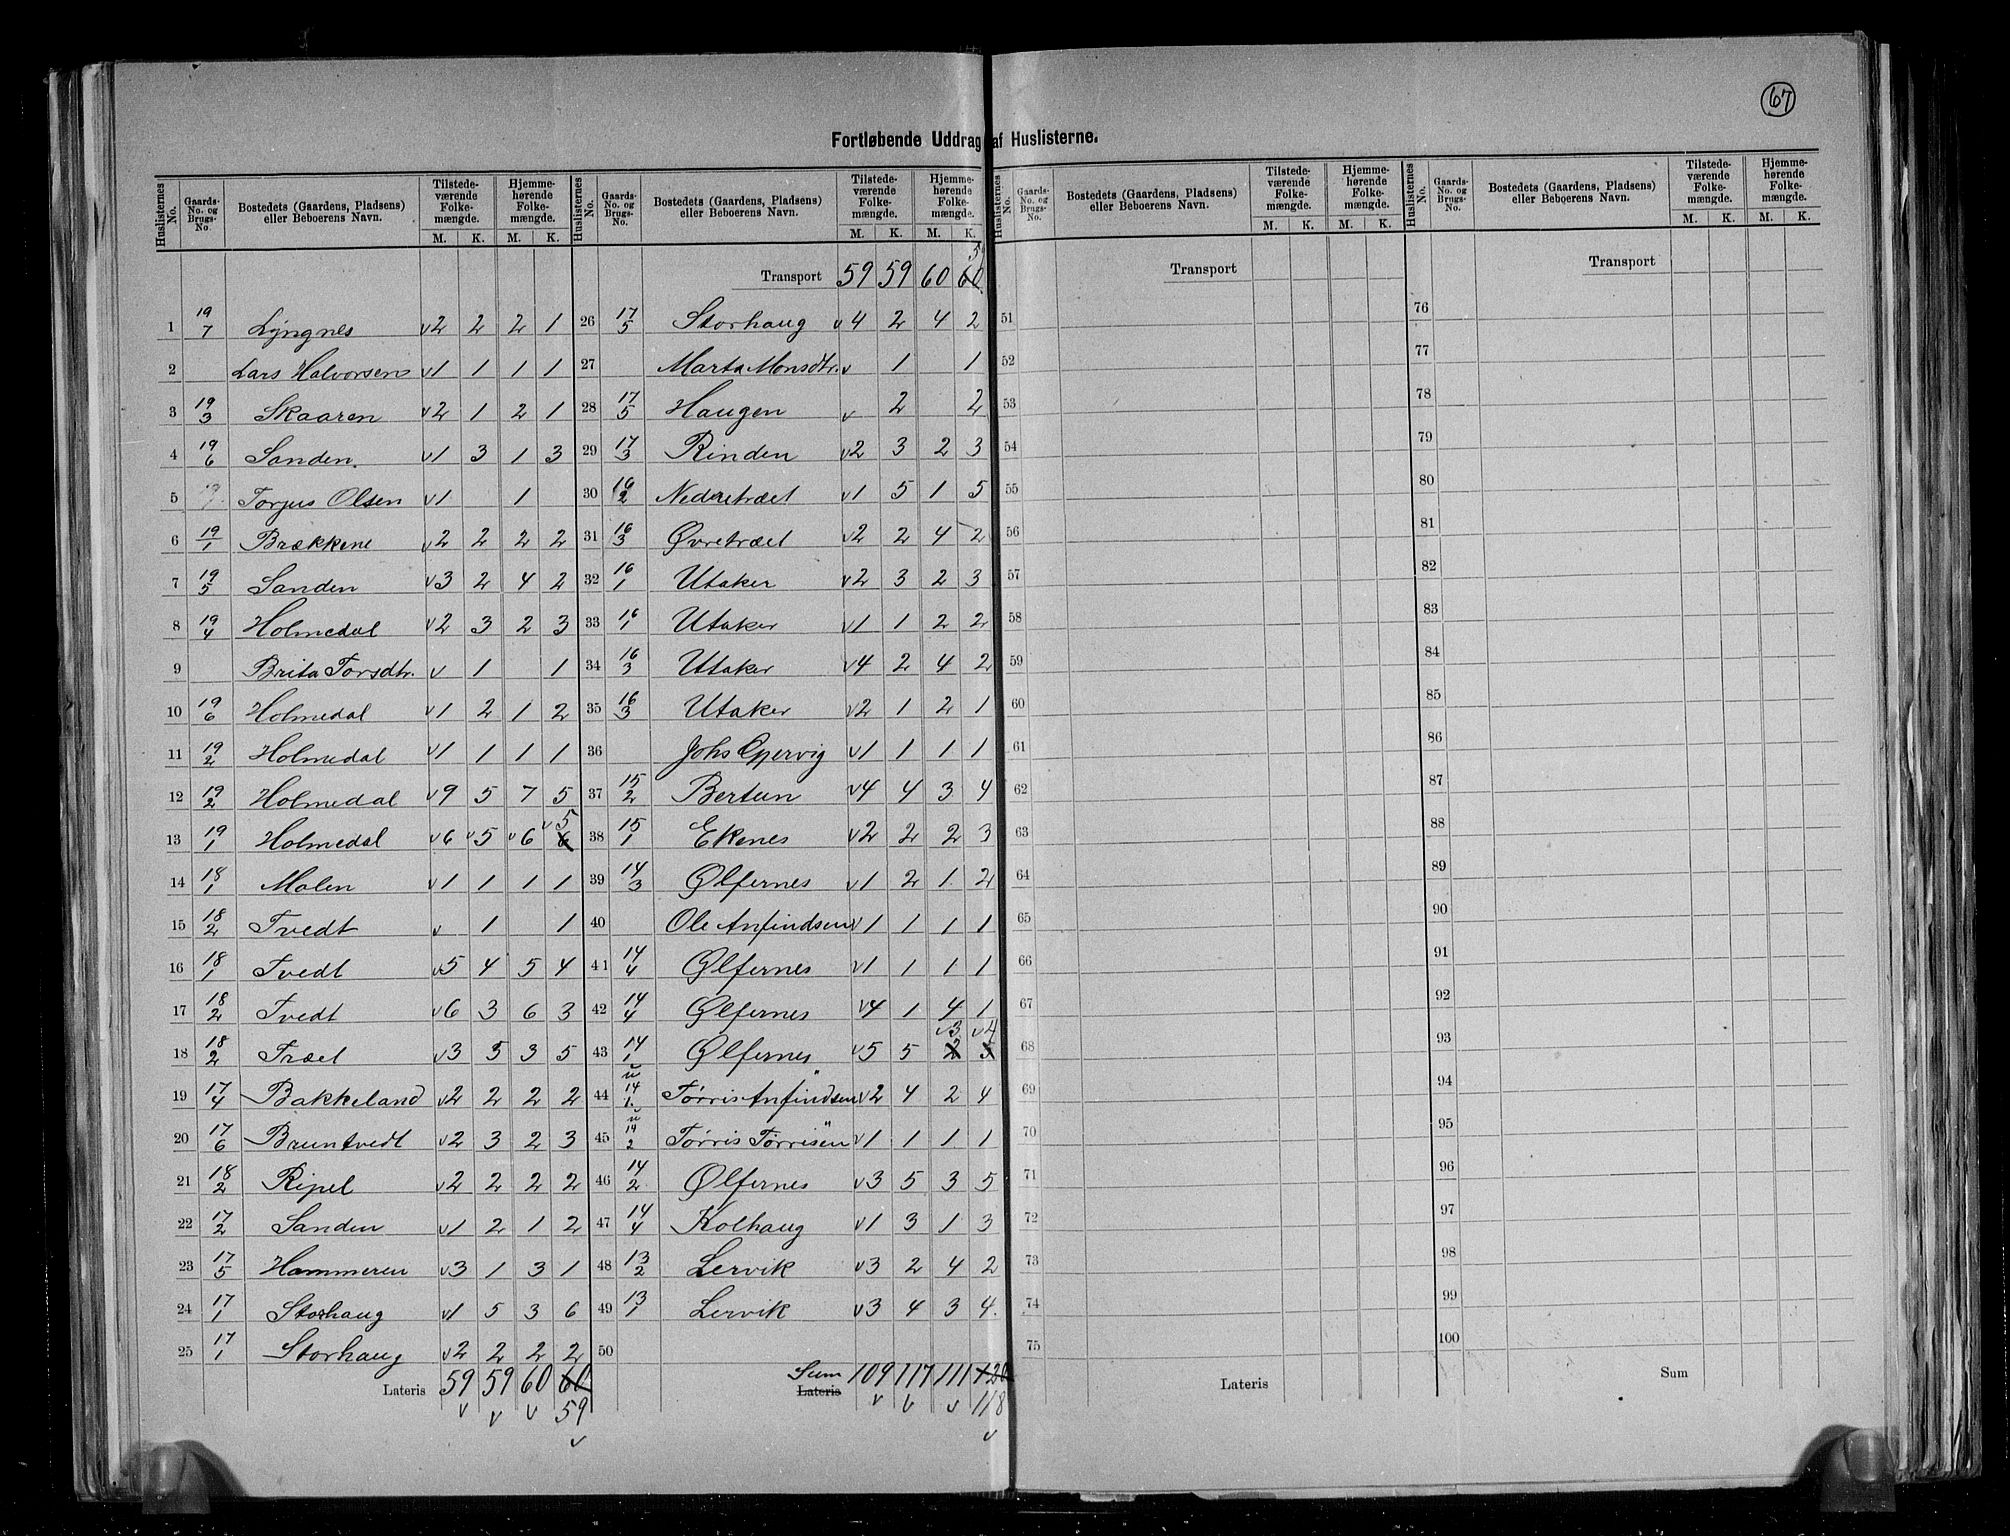 67
Fortløbende Uddrag af Huslisterne.
Huslisternes No. | Gaards-No. og Brugs-No. | Bostedets (Gaardens, Pladsens) eller Beboerens Navn. | Tilstedeværende Folkemængde. M. K. | Hjemmehørende Folkemængde. M. K.
1 19/7 Lÿngnes v2 2 2 1
2 Lars Halvorsen v1 1 1 1
3 19/3 Skaaren v2 1 2 1
4 19/6 Sanden. v1 3 1 3
5 Torjus Olsen v1 1
6 19/1 Brækkene v2 2 2 2
7 19/5 Sanden v3 2 4 2
8 19/4 Holmedal v2 3 2 3
9 Brita Torsdtr. v 1 1
10 19/6 Holmedal v1 2 1 2
11 19/2 Holmedal v1 1 1 1
12 19/2 Holmedal v9 5 7 5
13 19/1 Holmedal v6 v5 v6 6 v5
14 18/1 Molen v1 1 1 1
15 18/2 Tvedt v 1 1
16 18/1 Tvedt v5 4 5 4
17 18/2 Tvedt v6 3 6 3
18 18/2 Træet v3 5 3 5
19 17/4 Bakkeland v2 2 2 2
20 17/6 Bruntvedt v2 3 2 3
21 18/2 Ripel v2 2 2 2
22 17/2 Sanden v1 2 1 2
23 17/5 Hammeren v3 1 3 1
24 17/1 Storhaug v1 5 3 6
25 17/1 Storhaug v2 2 2 2
Lateris 59 59 60 60
v v v 59
v
Huslisternes No. | Gaards-No. og Brugs-No. | Bostedets (Gaardens, Pladsens) eller Beboerens Navn. | Tilstedeværende Folkemængde. M. K. | Hjemmehørende Folkemængde. M. K.
Transport 59 59 60 60
26 17/5 Storhaug v4 2 4 2
27 Marta Monsdtr. v 1 1
28 17/5 Haugen v 2 2
29 17/3 Rinden v2 3 2 3
30 16/2 Nedretræet v1 5 1 5
31 16/3 Øvretræet v2 2 4 2
32 16/1 Utaker v2 3 2 3
33 16/1 Utaker v1 1 2 2
34 16/3 Utaker v4 2 4 2
35 16/3 Utaker v2 1 2 1
36 Johs v1 1 1 1
37 15/2 Bertun v4 4 3 4
38 15/1 Ekenes v2 2 2 3
39 14/3 Ølfernes v1 2 1 2
40 Ole Anfindsen v1 1 1 1
41 14/4 Ølfernes v1 1 1 1
42 14/4 Ølfernes v4 1 4 1
43 14/1 Ølfernes v5 5 2 v3 5 v4
44 u 14/1. Tørris Anfindsen v2 4 2 4
45 u 14/2 Tørris Tørrisen v1 1 1 1
46 14/2 Ølfernes v3 5 3 5
47 14/4 Kolhaug v1 3 1 3
48 13/2 Lervik v3 2 4 2
49 13/1 Lervik v3 4 3 4.
50
Sum Lateris 109 117 111 120
v v v 118
v
Huslisternes No. | Gaards-No. og Brugs-No. | Bostedets (Gaardens, Pladsens) eller Beboerens Navn. | Tilstedeværende Folkemængde. M. K. | Hjemmehørende Folkemængde. M. K.
Transport
51
52
53
54
55
56
57
58
59
60
61
62
63
64
65
66
67
68
69
70
71
72
73
74
75
Lateris
Huslisternes No. | Gaards-No. og Brugs-No. | Bostedets (Gaardens, Pladsens) eller Beboerens Navn. | Tilstedeværende Folkemængde. M. K. | Hjemmehørende Folkemængde. M. K.
Transport
76
77
78
79
80
81
82
83
84
85
86
87
88
89
90
91
92
93
94
95
96
97
98
99
100
Sum